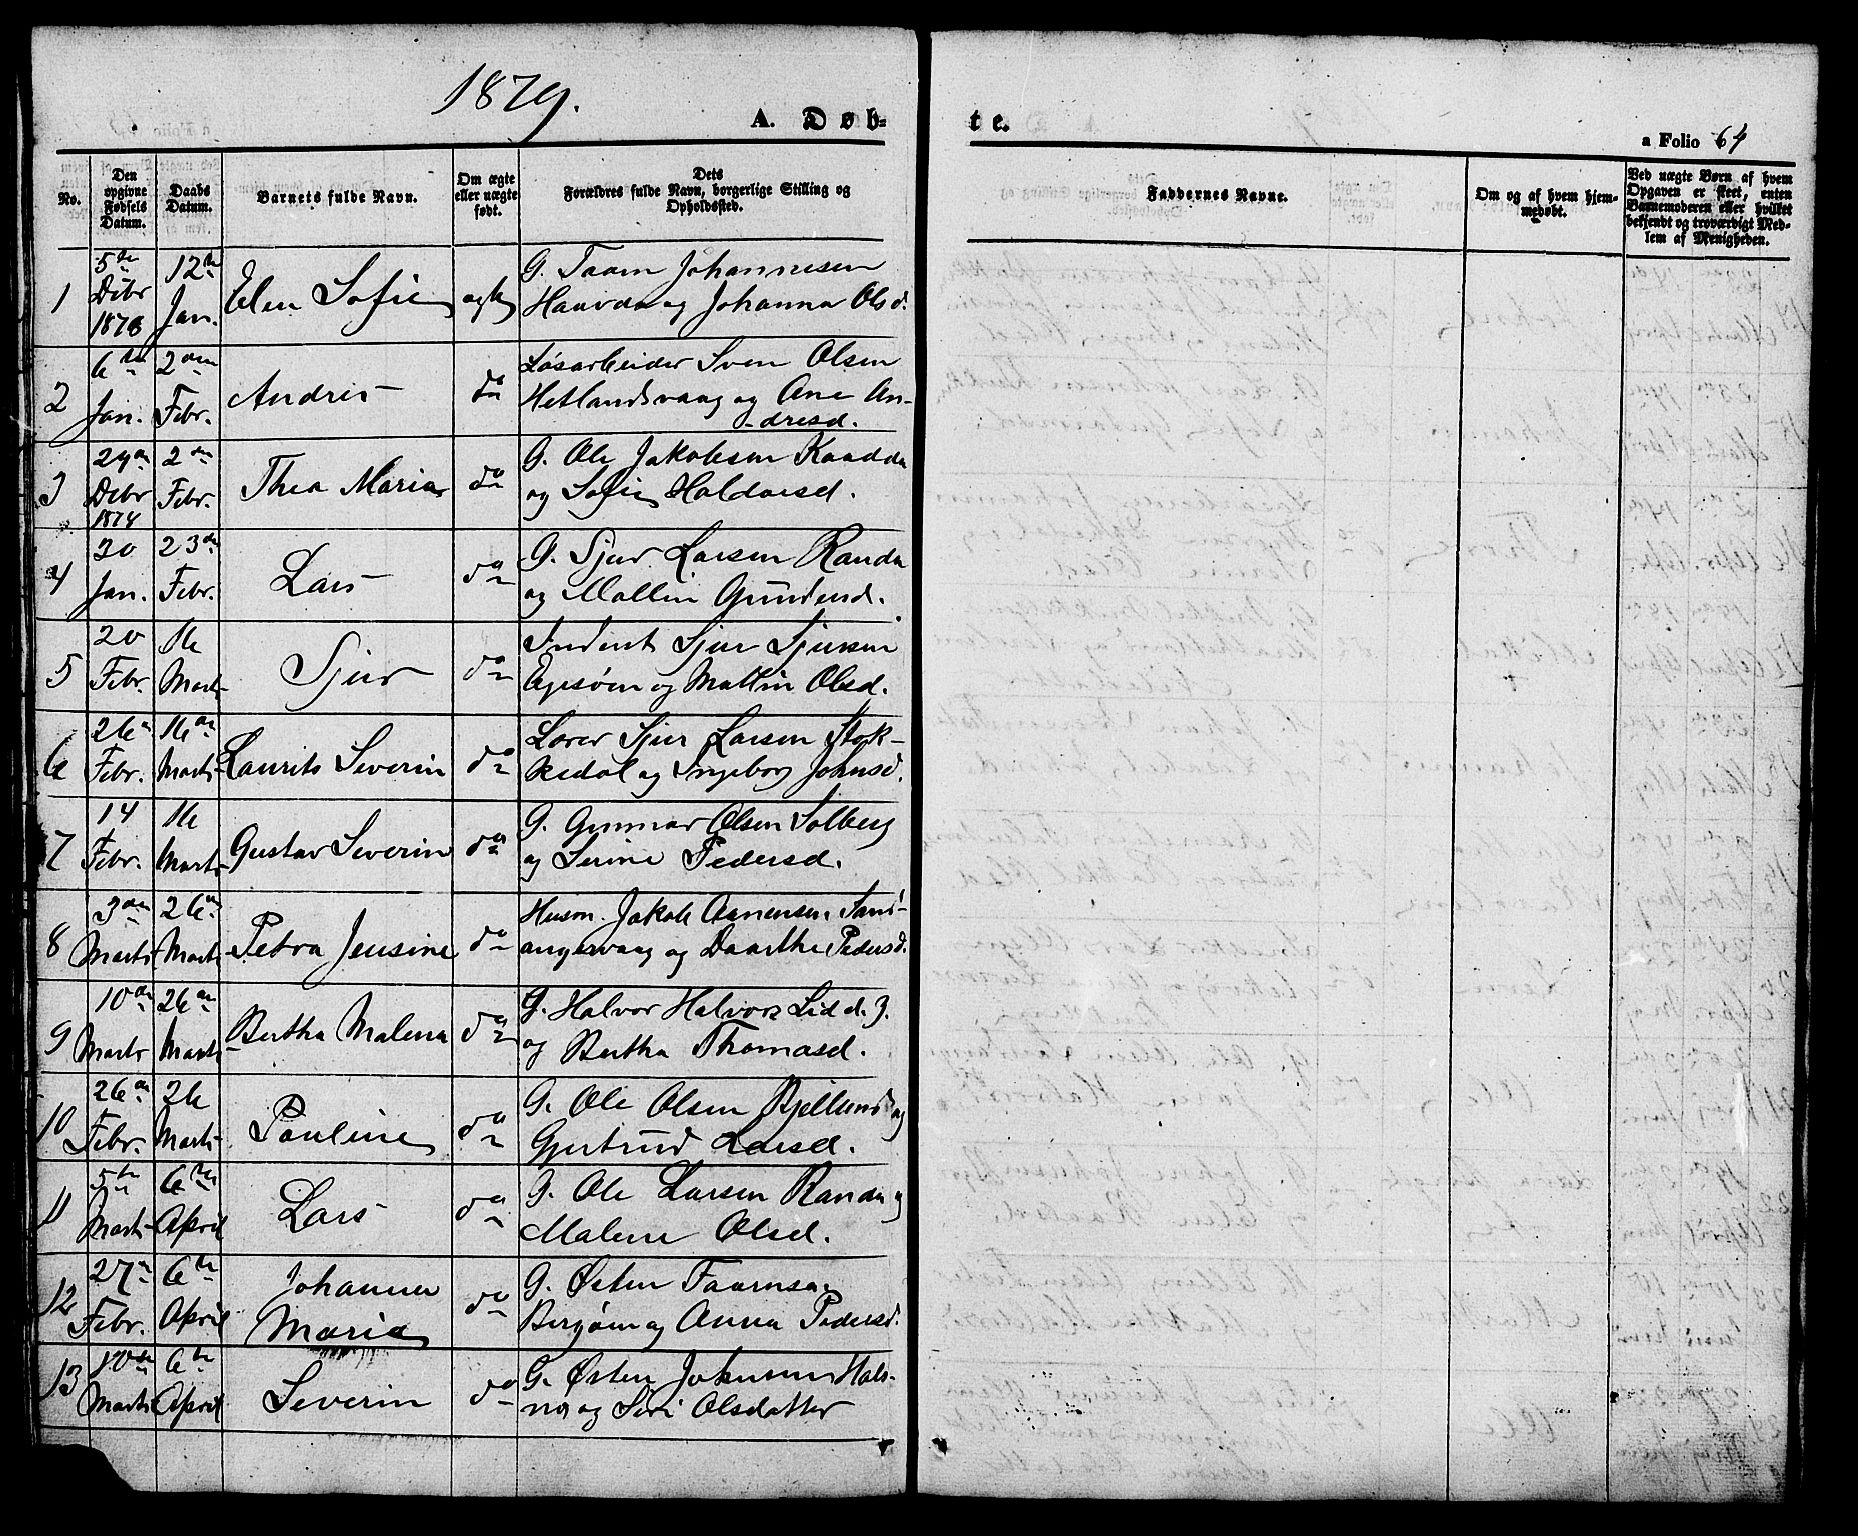 1879.
A. Døb-
te.
a Folio 64
No.
Den
opgivne
Fødsels
Datum.
Daabs
Datum.
Barnets fulde Navn.
Om ægte
eller uægte
født.
Dets
Forældres fulde Navn, borgerlige Stilling og
Opholdssted.
Faddernes Navne.
Om og af hvem hjem-
medøbt.
Ved uægte Børn af hvem
Opgaven er skeet, enten
Barnemoderen eller hvilket
bekjendt og troværdigt Med-
lem af Menigheden.
1
5te
Debr
1878
12te
Jan.
Elen Sofie
ægte
G. Taam Johannesen
Haavda og Johanna Olsd.
2
6te
Jan.
2den
Febr.
Andres
do
Løsarbeider Sven Olsen
Hetlandsvaag og Ane An-
dresd.
3
Debr
2den
Febr.
Thea Maria
do
G. Ole Jakobsen
og Sofie Haldorsd.
4
20
Jan.
23de
Febr.
Lars
do
G. Sjur Larsen Randa
og Mallin
5
20
Febr.
16
Marts
Sjur
do
Inderst Sjur Sjursen
og Mallin Olsd.
6
26
Febr.
16
Marts
Laurits Severin
do
Lærer Sjur Larsen Stok-
kedal og Ingeborg Johnsd.
7
14
Febr.
16
Marts
Gustav Severin
do
G. Gunnar Olsen Solberg
og Serine Pedersd.
8
3den
Marts
26
Marts
Petra Jensine
do
Husm. Jakob Aanensen Sand-
angervaag og Daarthe Pedersd.
9
10
Marts
26
Marts
Bertha Malena
do
G. Halvor Halvors Lid d. 3.
og Bertha Thomasd.
10
26
Febr.
26
Marts
Pauline
do
G. Ole Olsen og
Gjertrud Larsd.
11
5te
Marts
6te
April
Lars
do
G. Ole Larsen Randa og
Malene Olsd.
12
27
Febr.
6te
April
Johanna
Maria
do
G. Østen
og Anna Pedersd.
13
10de
Marts
6te
April
Severin
do
G. Østen Johnsen Hals-
nø og Siri Olsdatter